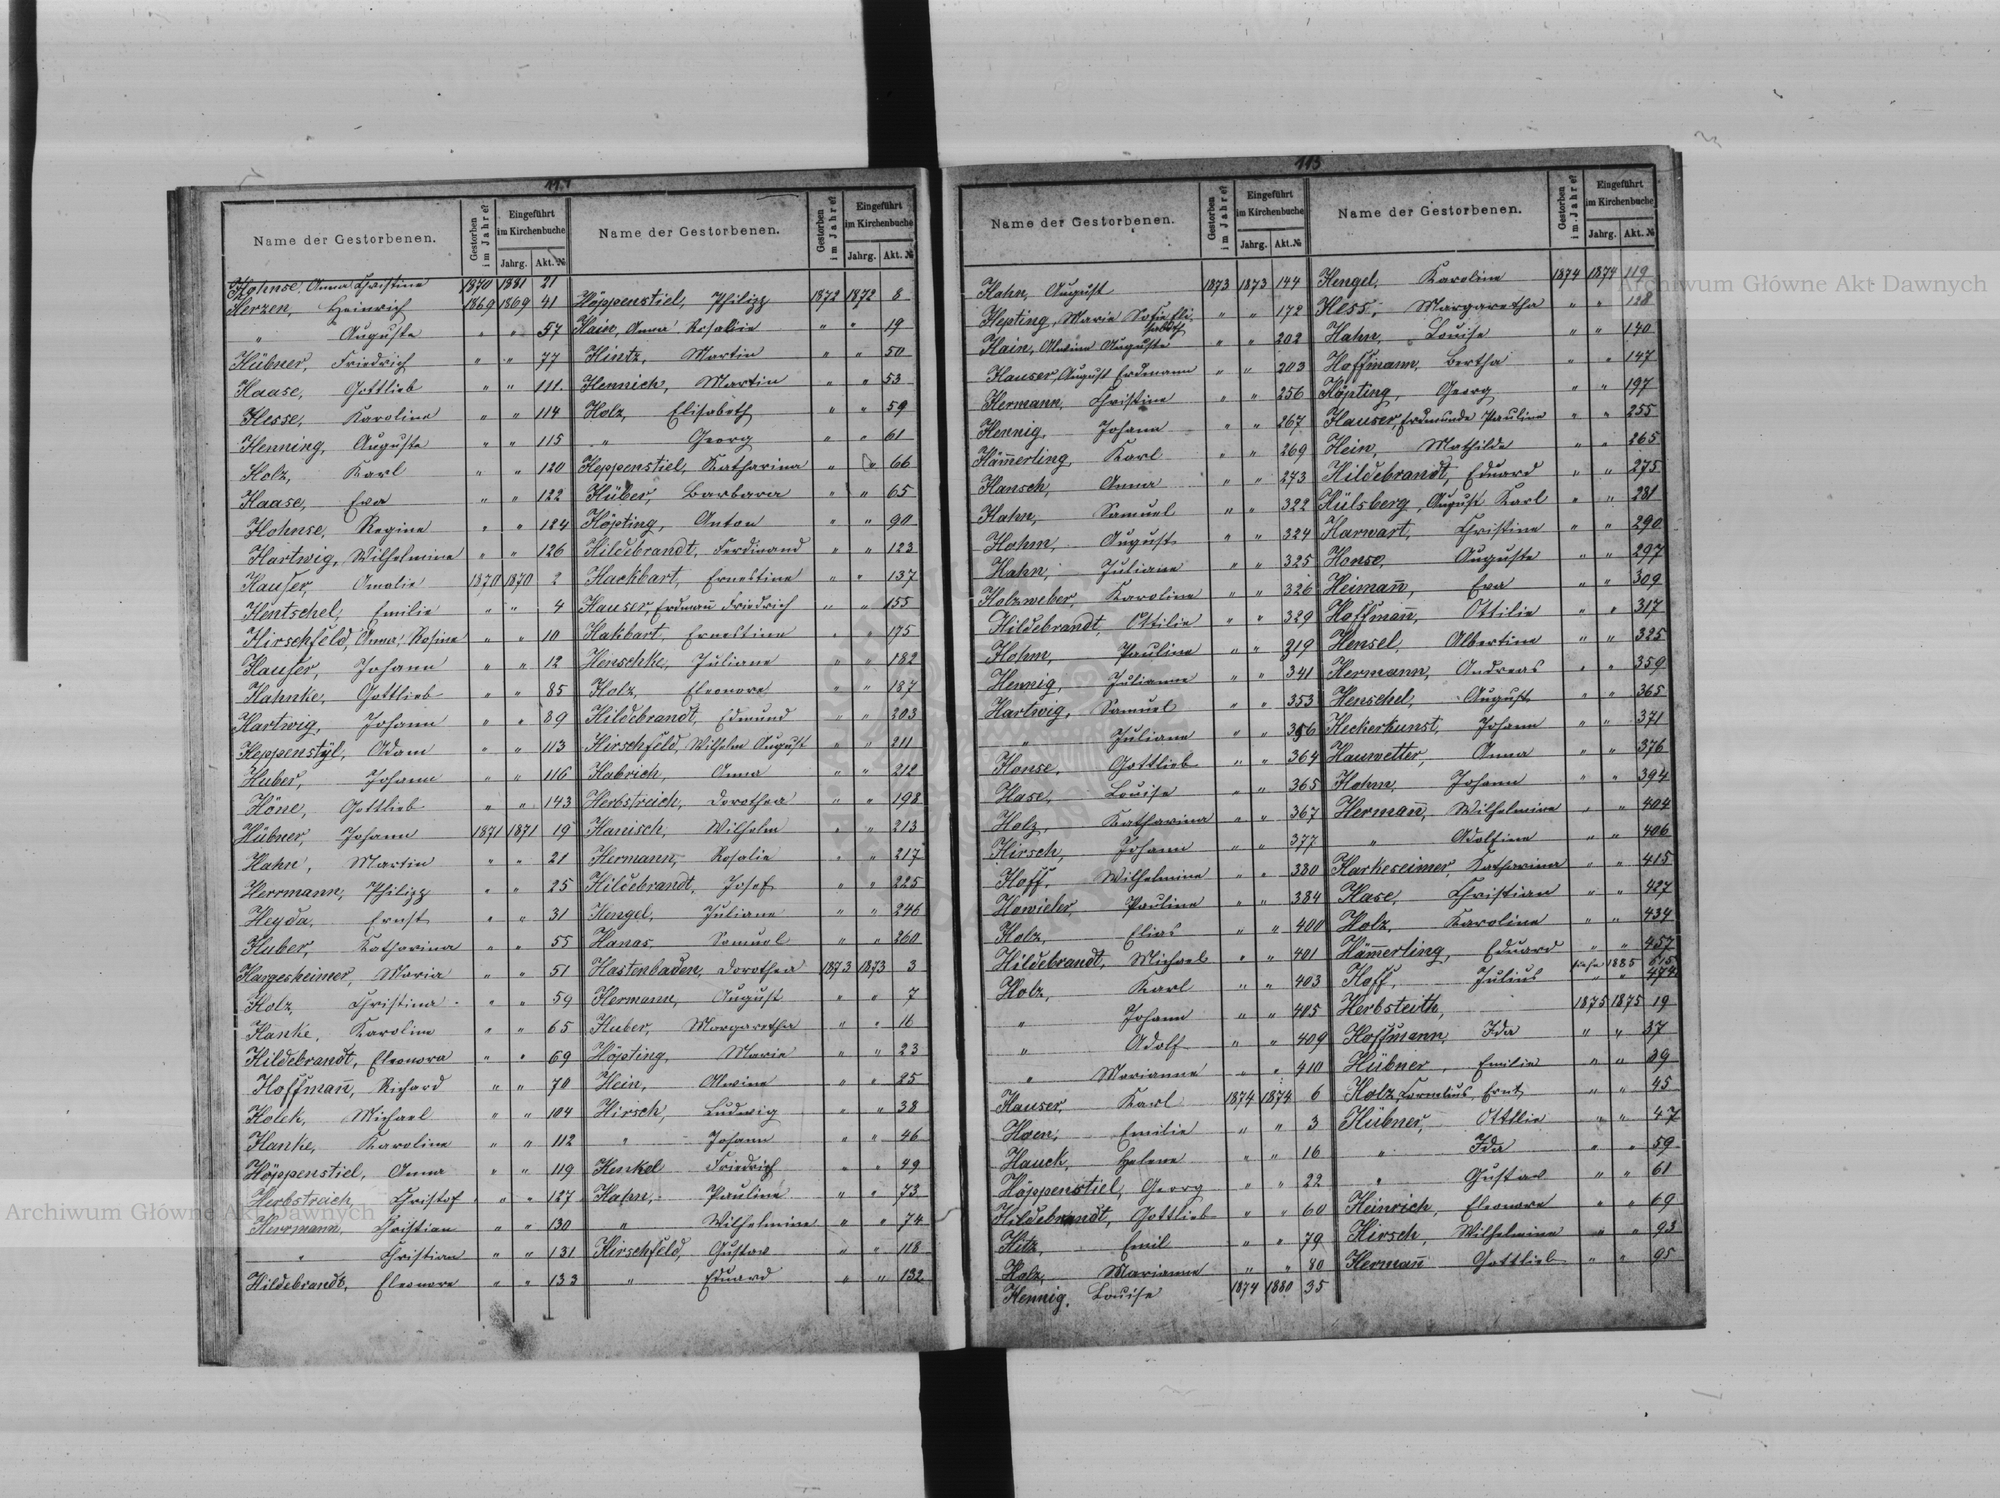 117
Name der Gestorbenen.
Gestorben im Jahre?
Eingeführt im Kirchenbuche
Jahrg. Akt. №
Hohnse, Anna Christine 1870 1881 21
Herzen, Heinrich 1869 1869 41
" Auguste " " 57
Hübner, Friedrich " " 77
Haase, Gottlieb " " 111
Hesse, Karoline " " 114
Henning, Auguste " " 115
Holz, Karl " " 120
Haase, Eva " " 122
Hohnse, Regine " " 124
Hartwig, Wilhelmine " " 126
Hauser, Amalie 1870 1870 2
Hentschel, Emilie " " 4
Hirschfeld, Anna Rosine " " 10
Hauser, Johann " " 12
Hahnke, Gottlieb " " 85
Hartwig, Johann " " 89
Heppenstyl, Adam " " 113
Huber, Johann " " 116
Höne, Gottlieb " " 143
Hübner, Johann 1871 1871 19
Hahn, Martin " " 21
Herrmann, Philipp " " 25
Heyda, Ernst " " 31
Huber, Katharina " " 55
Hargesheimer, Maria " " 51
Holz, Christina " " 59
Hanke, Karoline " " 65
Hildebrandt, Eleonora " " 69
Hoffman̄, Richard " " 70
Holek, Michael " " 104
Hanke, Karoline " " 112
Höppenstiel, Anna " " 119
Herbstreich, Christof " " 127
Herrmann, Christian " " 130
" Christian " " 131
Hildebrandt, Eleonore " " 133
Name der Gestorbenen.
Gestorben im Jahre?
Eingeführt im Kirchenbuche
Jahrg. Akt. №
Höppenstiel, Philipp 1872 1872 8
Hain, Anna Rosalie " " 19
Hintz, Martin " " 50
Hennich, Martin " " 53
Holz, Elisabeth " " 59
" Georg " " 61
Heppenstiel, Katharina " " 66
Hüber, Barbara " " 65
Höpting, Anton " " 90
Hildebrandt, Ferdinand " " 123
Hackbart, Ernestine " " 137
Hauser, Erdman̄ Friedrich " " 155
Hakbart, Ernestine " " 175
Henschke, Juliane " " 182
Holz, Eleonore " " 187
Hildebrandt, Edmund " " 203
Hirschfeld, Wilhelm August " " 211
Habrich, Anna " " 212
Herbstreich, Dorothea " " 198
Hanisch, Wilhelm " " 213
Hermann, Rosalie " " 217
Hildebrandt, Josef " " 225
Hengel, Juliane " " 246
Hanas, Samuel " " 260
Hastenbaden, Dorothea 1873 1873 3
Hermann, August " " 7
Huber, Margaretha " " 16
Höpting, Marie " " 23
Hein, Alwine " " 25
Hirsch, Ludwig " " 38
" Johann " " 46
Henkel Friedrich " " 49
Hahn, Pauline " " 73
" Wilhelmine " " 74
Hirschfeld, Gustav " " 118
" Eduard " " 132
113
Name der Gestorbenen.
Gestorben im Jahre?
Eingeführt im Kirchenbuche
Jahrg. Akt. №
Hahn, August 1873 1873 144
Hepting, Marie Sofie Elisabeth " " 172
Hain, Alwine Auguste " " 202
Hauser, August Erdmann " " 203
Hermann, Christine " " 256
Hennig, Johann " " 267
Häm̄erling, Karl " " 269
Hansch, Anna " " 273
Hahn, Samuel " " 322
Hohm, August " " 324
Hahn, Juliane " " 325
Holzweber, Karoline " " 326
Hildebrandt, Ottilie " " 329
Hohm, Pauline " " 319
Hennig, Julianne " " 341
Hartwig, Samuel " " 353
" Juliane " " 356
Honse, Gottlieb " " 364
Hase, Louise " " 365
Holz, Katharina " " 367
Hirsch, Johann " " 377
Hoff, Wilhelmine " " 380
Howieler, Pauline " " 384
Holz, Elias " " 400
Hildebrandt, Michael " " 401
Holz, Karl " " 403
" Johann " " 405
" Adolf " " 409
" Marianne " " 410
Hauser, Karl 1874 1874 6
Hoen, Emilie " " 3
Hauck, Helene " " 16
Höppenstiel, Georg " " 22
Hildebrandt, Gottlieb " " 60
Hitz, Emil " " 79
Holz, Marianne " " 80
Hennig, Louise 1874 1880 35
Name der Gestorbenen.
Gestorben im Jahre?
Eingeführt im Kirchenbuche
Jahrg. Akt. №
Hengel, Karoline 1874 1874 119
Hess, Margaretha " " 128
Hahn, Louise " " 140
Hoffmann, Bertha " " 147
Höpting, Georg " " 197
Hauser Erdmunde Pauline " " 255
Hein, Mathilde " " 265
Hildebrandt, Eduard " " 275
Hülsberg, August Karl " " 281
Harwart, Christine " " 290
Honse, Auguste " " 297
Heiman̄, Eva " " 309
Hoffman̄, Ottilie " " 317
Hensel, Albertine " " 325
Hermann, Andreas " " 359
Henschel, August " " 365
Heckerkunst, Johann " " 371
Hauwetter, Anna " " 376
Hohn, Johann " " 394
Herman̄, Wilhelmine " " 404
" Adolfine " " 406
Harkeseimer, Katharina " " 415
Hase, Christian " " 427
Holz, Karoline " " 434
Häm̄erling, Eduard " " 457
Hoff, Julius siehe 1885 " " 474
Herbsteith, 1875 1875 19
Hoffmann, Ida " " 37
Hübner, Emilie " " 39
Holz, Cornelius Ernst " " 45
Hübner, Ottilie " " 47
" Ida " " 59
" Gustav " " 61
Heinrich, Eleonore " " 69
Hirsch, Wilhelmine " " 93
Herman̄ Gottlieb " " 95
Archiwum Główne Akt Dawnych
Archiwum Główne Akt Dawnych